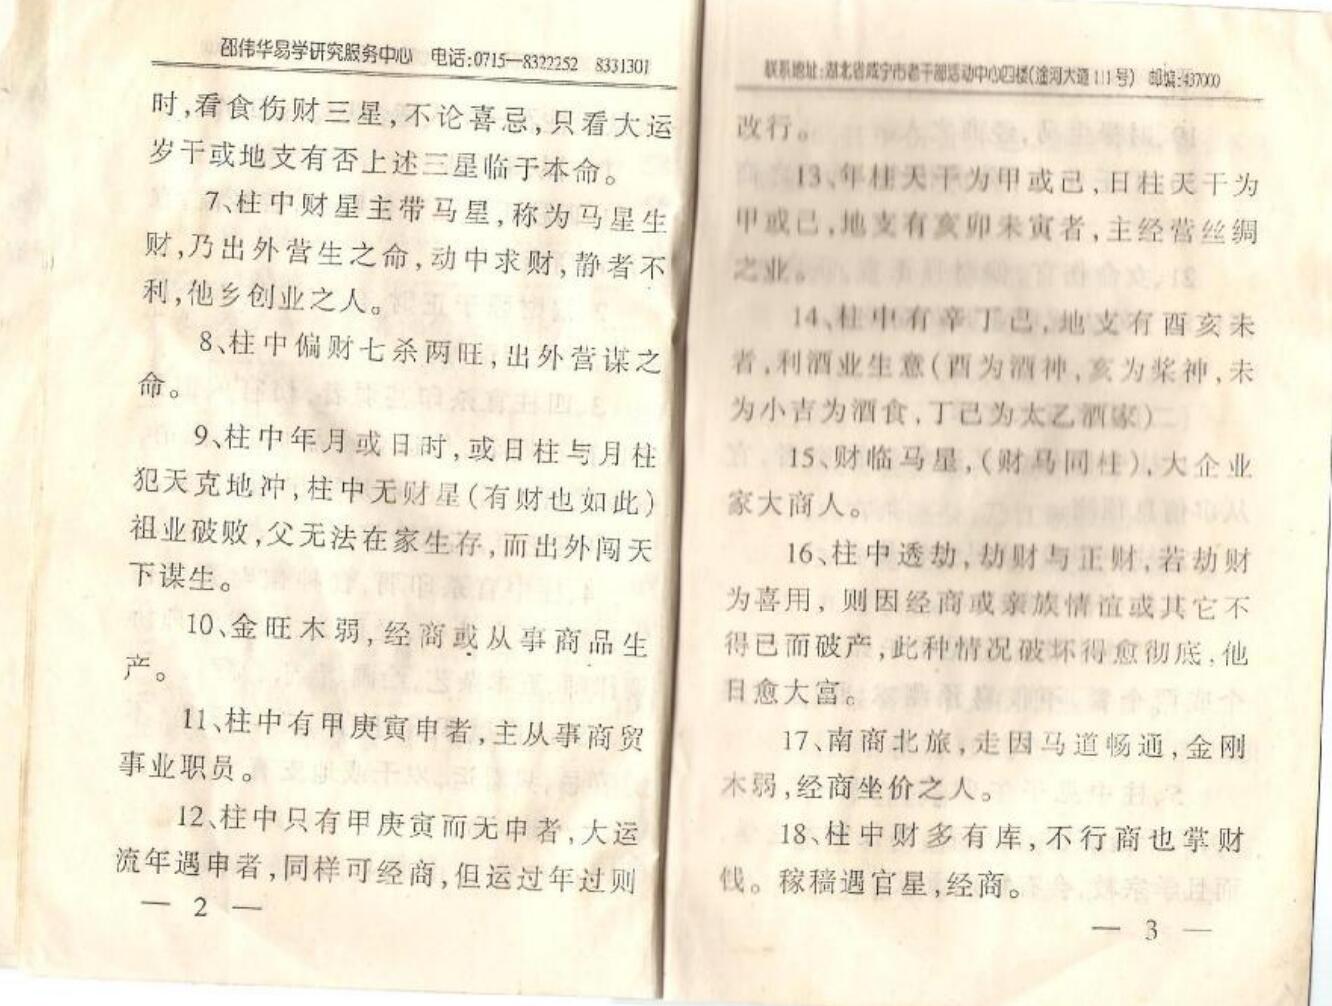 邵伟华易学研究服务中心 电话:0715—8322252 8331301
时,看食伤财三星,不论喜忌,只看大运
岁干或地支有否上述三星临于本命。
7、柱中财星主带马星,称为马星生
财,乃出外营生之命,动中求财,静者不
利,他乡创业之人。
8、柱中偏财七杀两旺,出外营谋之
命。
9、柱中年月或日时,或日柱与月柱
犯天克地冲,柱中无财星(有财也如此)
祖业破败,父无法在家生存,而出外闯天
下谋生。
10、金旺木弱,经商或从事商品生
产。
11、柱中有甲庚寅申者,主从事商贸
事业职员。
12、柱中只有甲庚寅而无申者,大运
流年遇申者,同样可经商,但运过年过则
— 2 —
联系地址:湖北省咸宁市老干部活动中心四楼(淦河大道111号) 邮编:437000
改行。
13、年柱天干为甲或己,日柱天干为
甲或己,地支有亥卯未寅者,主经营丝绸
之业。
14、柱中有辛丁己,地支有酉亥未
者,利酒业生意(酉为酒神,亥为桨神,未
为小吉为酒食,丁己为太乙酒家)
15、财临马星,(财马同柱),大企业
家大商人。
16、柱中透劫,劫财与正财,若劫财
为喜用,则因经商或亲族情谊或其它不
得已而破产,此种情况破坏得愈彻底,他
日愈大富。
17、南商北旅,走因马道畅通,金刚
木弱,经商坐价之人。
18、柱中财多有库,不行商也掌财
钱。稼穑遇官星,经商。
— 3 —